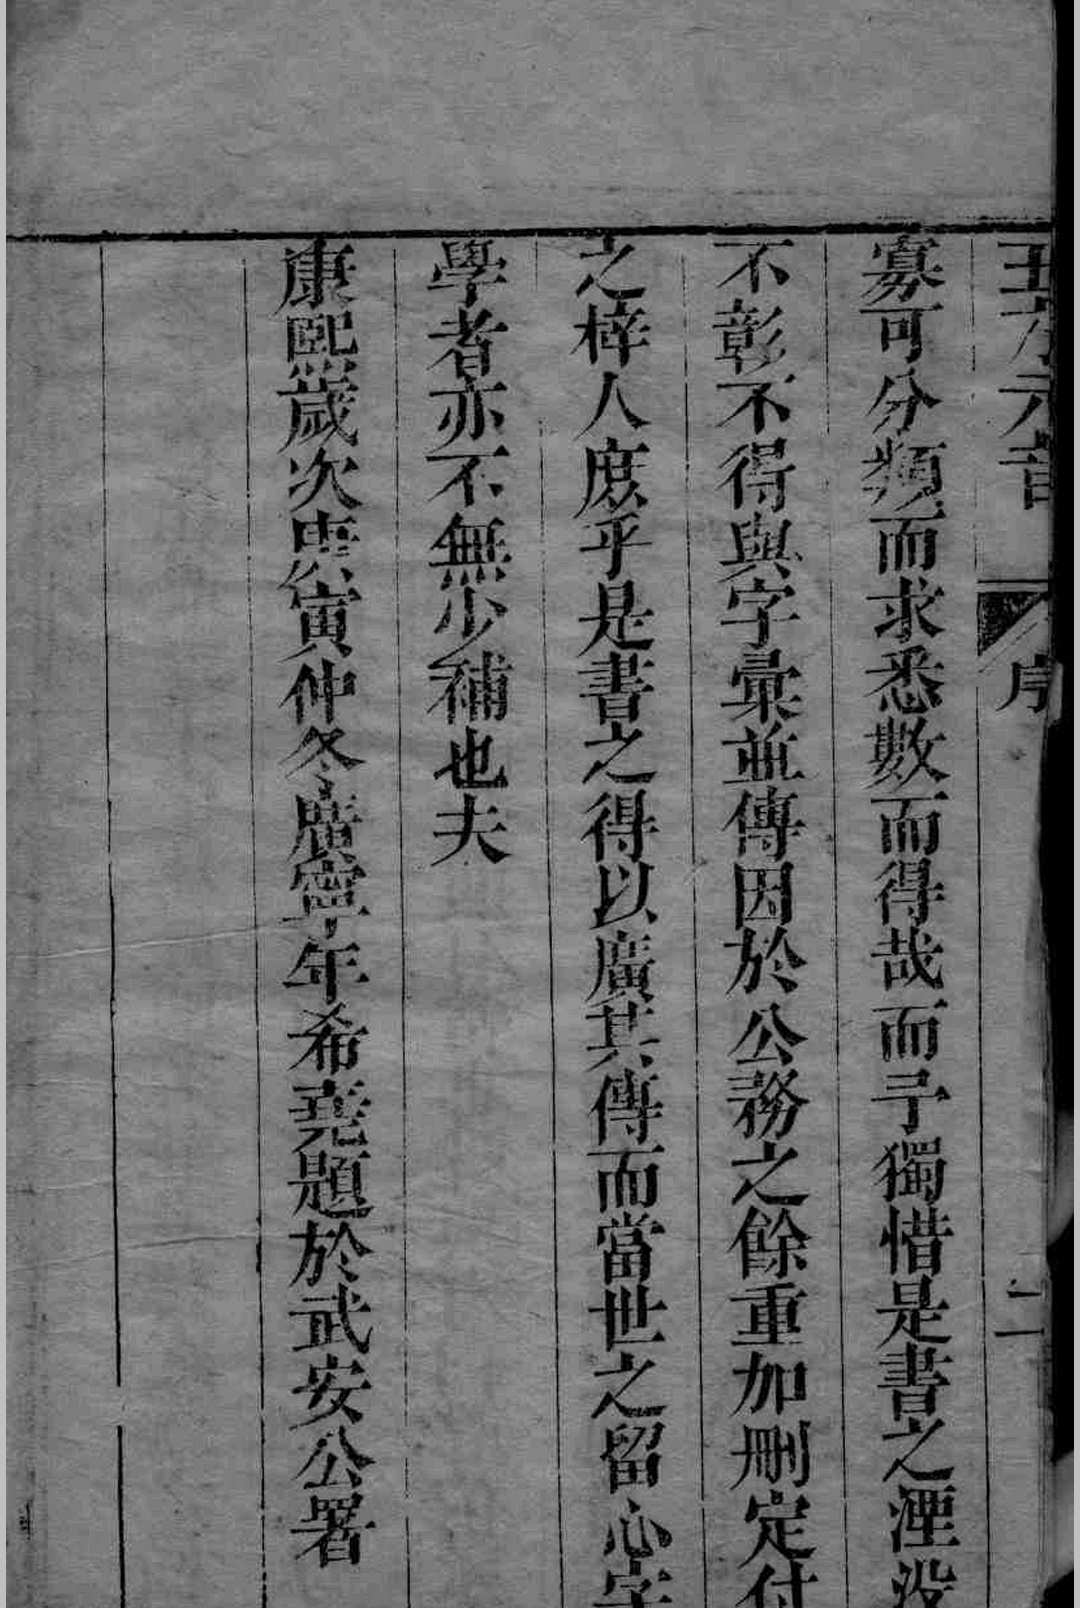 五方元音 序 二
寡可分類而求悉數而得哉而予獨惜是書之湮没
不彰不得與字彙並傳因於公務之餘重加刪定付
之梓人庶乎是書之得以廣其傳而當世之留心字
學者亦不無少補也夫
康熙歲次庚寅仲冬廣寧年希堯題於武安公署